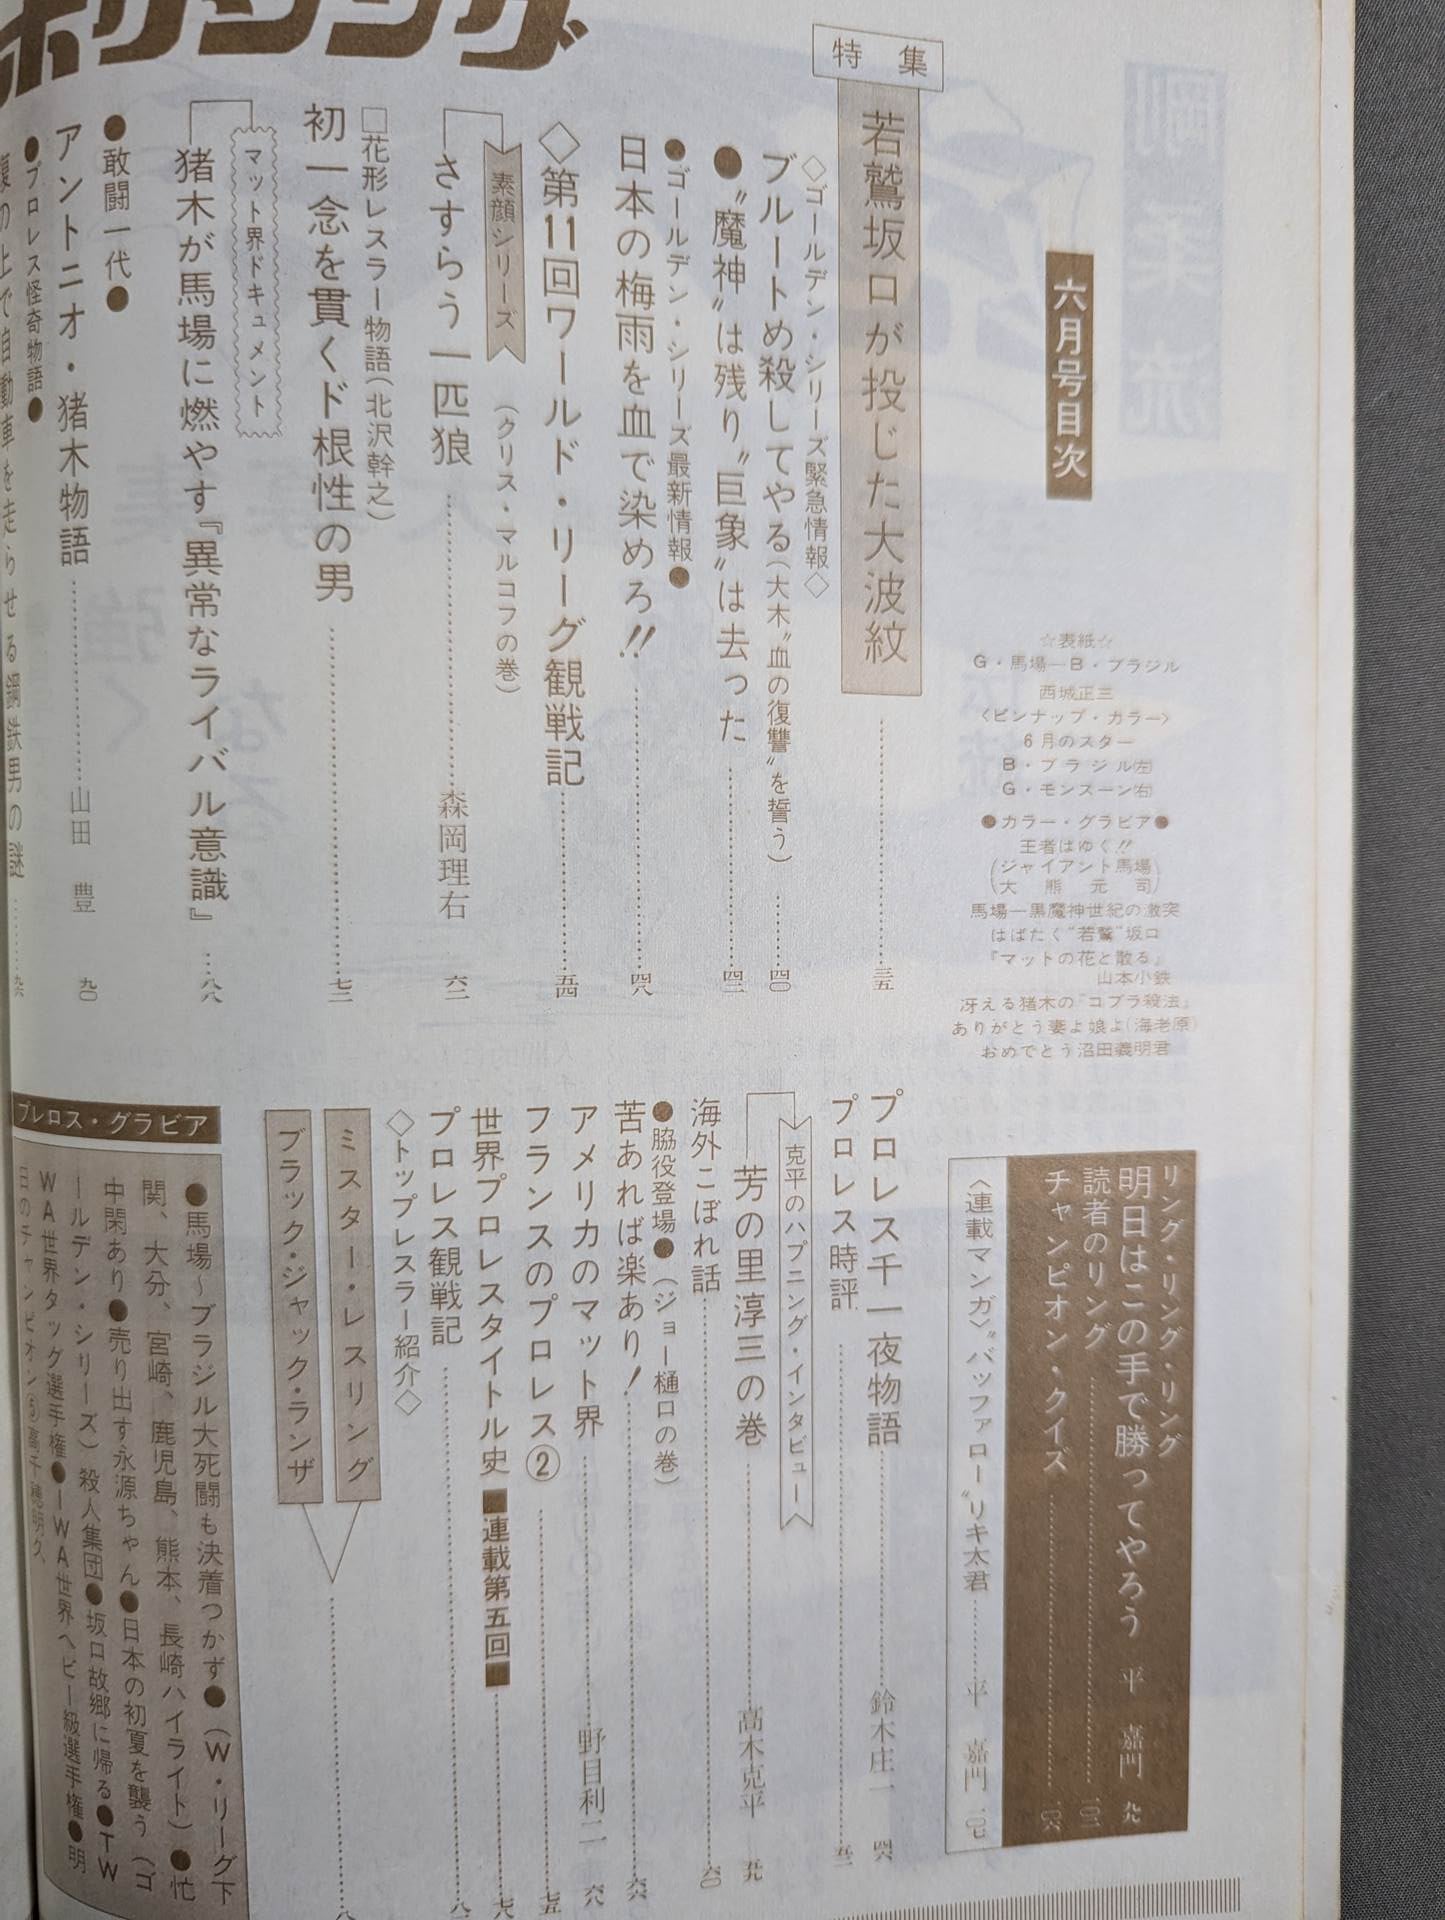 六月号目次
☆表紙☆
G・馬場―B・ブラジル
西城正三
〈ピンナップ・カラー〉
6月のスター
B・ブラジル㊧
G・モンスーン㊨
●カラー・グラビア●
王者はゆく!!
(ジャイアント馬場
大熊元司)
馬場―黒魔神世紀の激突
はばたく“若鷲”坂口
『マットの花と散る』
山本小鉄
冴える猪木の「コブラ殺法」
ありがとう妻よ娘よ(海老原)
おめでとう沼田義明君
特集
若鷲坂口が投じた大波紋……三五
◇ゴールデン・シリーズ緊急情報◇
ブルートめ殺してやる(大木〝血の復讐〟を誓う)……四〇
●〝魔神〟は残り〝巨象〟は去った……四二
●ゴールデン・シリーズ最新情報●
日本の梅雨を血で染めろ!!……四八
◇第11回ワールド・リーグ観戦記……五四
素顔シリーズ
(クリス・マルコフの巻)
さすらう一匹狼……森岡理右 六二
□花形レスラー物語(北沢幹之)
初一念を貫くド根性の男……七二
マット界ドキュメント
猪木が馬場に燃やす『異常なライバル意識』……八八
●敢闘一代●
アントニオ・猪木物語……山田 豊 九〇
●プロレス怪奇物語●
腹の上で自動車を走らせる鋼鉄男の謎……九六
リング・リング・リング
明日はこの手で勝ってやろう 平 嘉門 九八
読者のリング……一〇二
チャンピオン・クイズ……一〇六
〈連載マンガ〉〝バッファロー〟リキ太君……平 嘉門 一〇七
プロレス千一夜物語……鈴木庄一 四六
プロレス時評……五二
克平のハプニング・インタビュー
芳の里淳三の巻……高木克平 五九
海外こぼれ話……六〇
●脇役登場●(ジョー樋口の巻)
苦あれば楽あり!……六六
アメリカのマット界……野目利二 六八
フランスのプロレス②……七五
世界プロレスタイトル史■連載第五回■……七八
プロレス観戦記……八一
◇トップレスラー紹介◇
ミスター・レスリング
ブラック・ジャック・ランザ
プレロス・グラビア
●馬場〜ブラジル大死闘も決着つかず●(W・リーグ下
関、大分、宮崎、鹿児島、熊本、長崎ハイライト)●忙
中閑あり●売り出す永源ちゃん●日本の初夏を襲う(ゴ
ールデン・シリーズ)殺人集団●坂口故郷に帰る●TW
WA世界タッグ選手権●IWA世界ヘビー級選手権●明
日のチャンピオン⑤高千穂明久